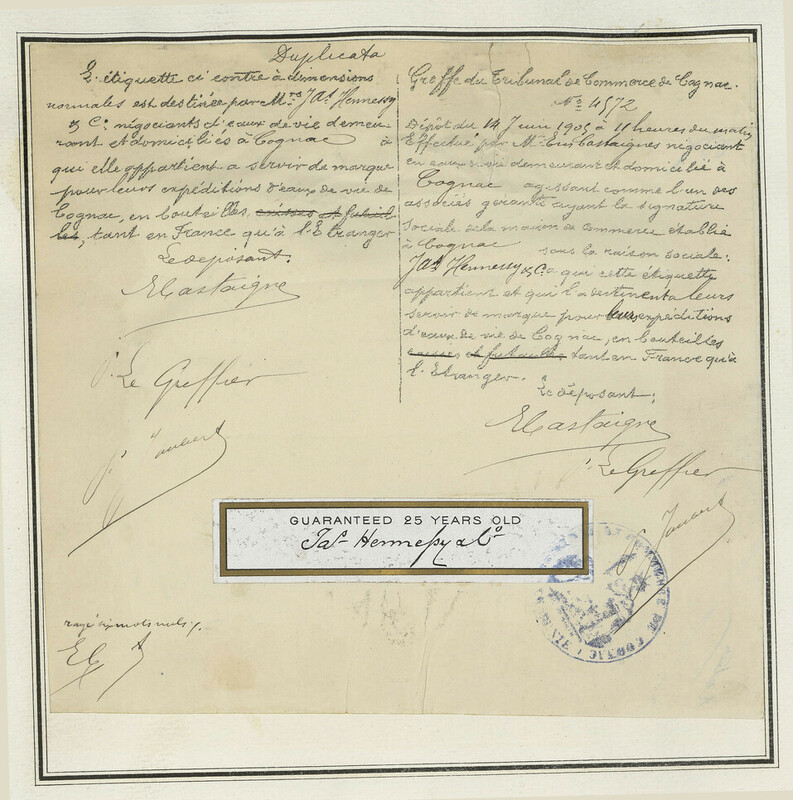 Duplicata
L'étiquette ci contre à dimensions
normales est destinée par Mrs Jas Hennessy
& Co. négociants d'eaux de vie demeu
rant et domiciliés à Cognac à
qui elle appartient a servir de marque
pour leurs expéditions d'eaux de vie de
Cognac, en bouteilles, caisses et futail
les, tant en France qu'à l'Etranger
Le déposant:
ECastaigne
p. Le Greffier
rayé six mots nuls
Greffe du Tribunal de Commerce de Cognac.
No 4572
Dépôt du 14 Juin 1905 à 11 heures du matin
Effectué par Mr Castaignes négociant
en eaux de vie demeurant et domicilié à
Cognac agissant comme l'un des
associés gérants ayant la signature
sociale de la maison de commerce établie
à Cognac sous la raison sociale:
Jas Hennessy & Co a qui cette étiquette
appartient et qui l'a destinent a leurs
servir de marque pour leurs expéditions
d'eaux de vie de Cognac, en bouteilles
caisses et futailles tant en France qu'à
l'Etranger.
Le déposant:
ECastaigne
p. Le Greffier
GUARANTEED 25 YEARS OLD
Jas Hennessy & Co
COMMERCE DE COGNAC